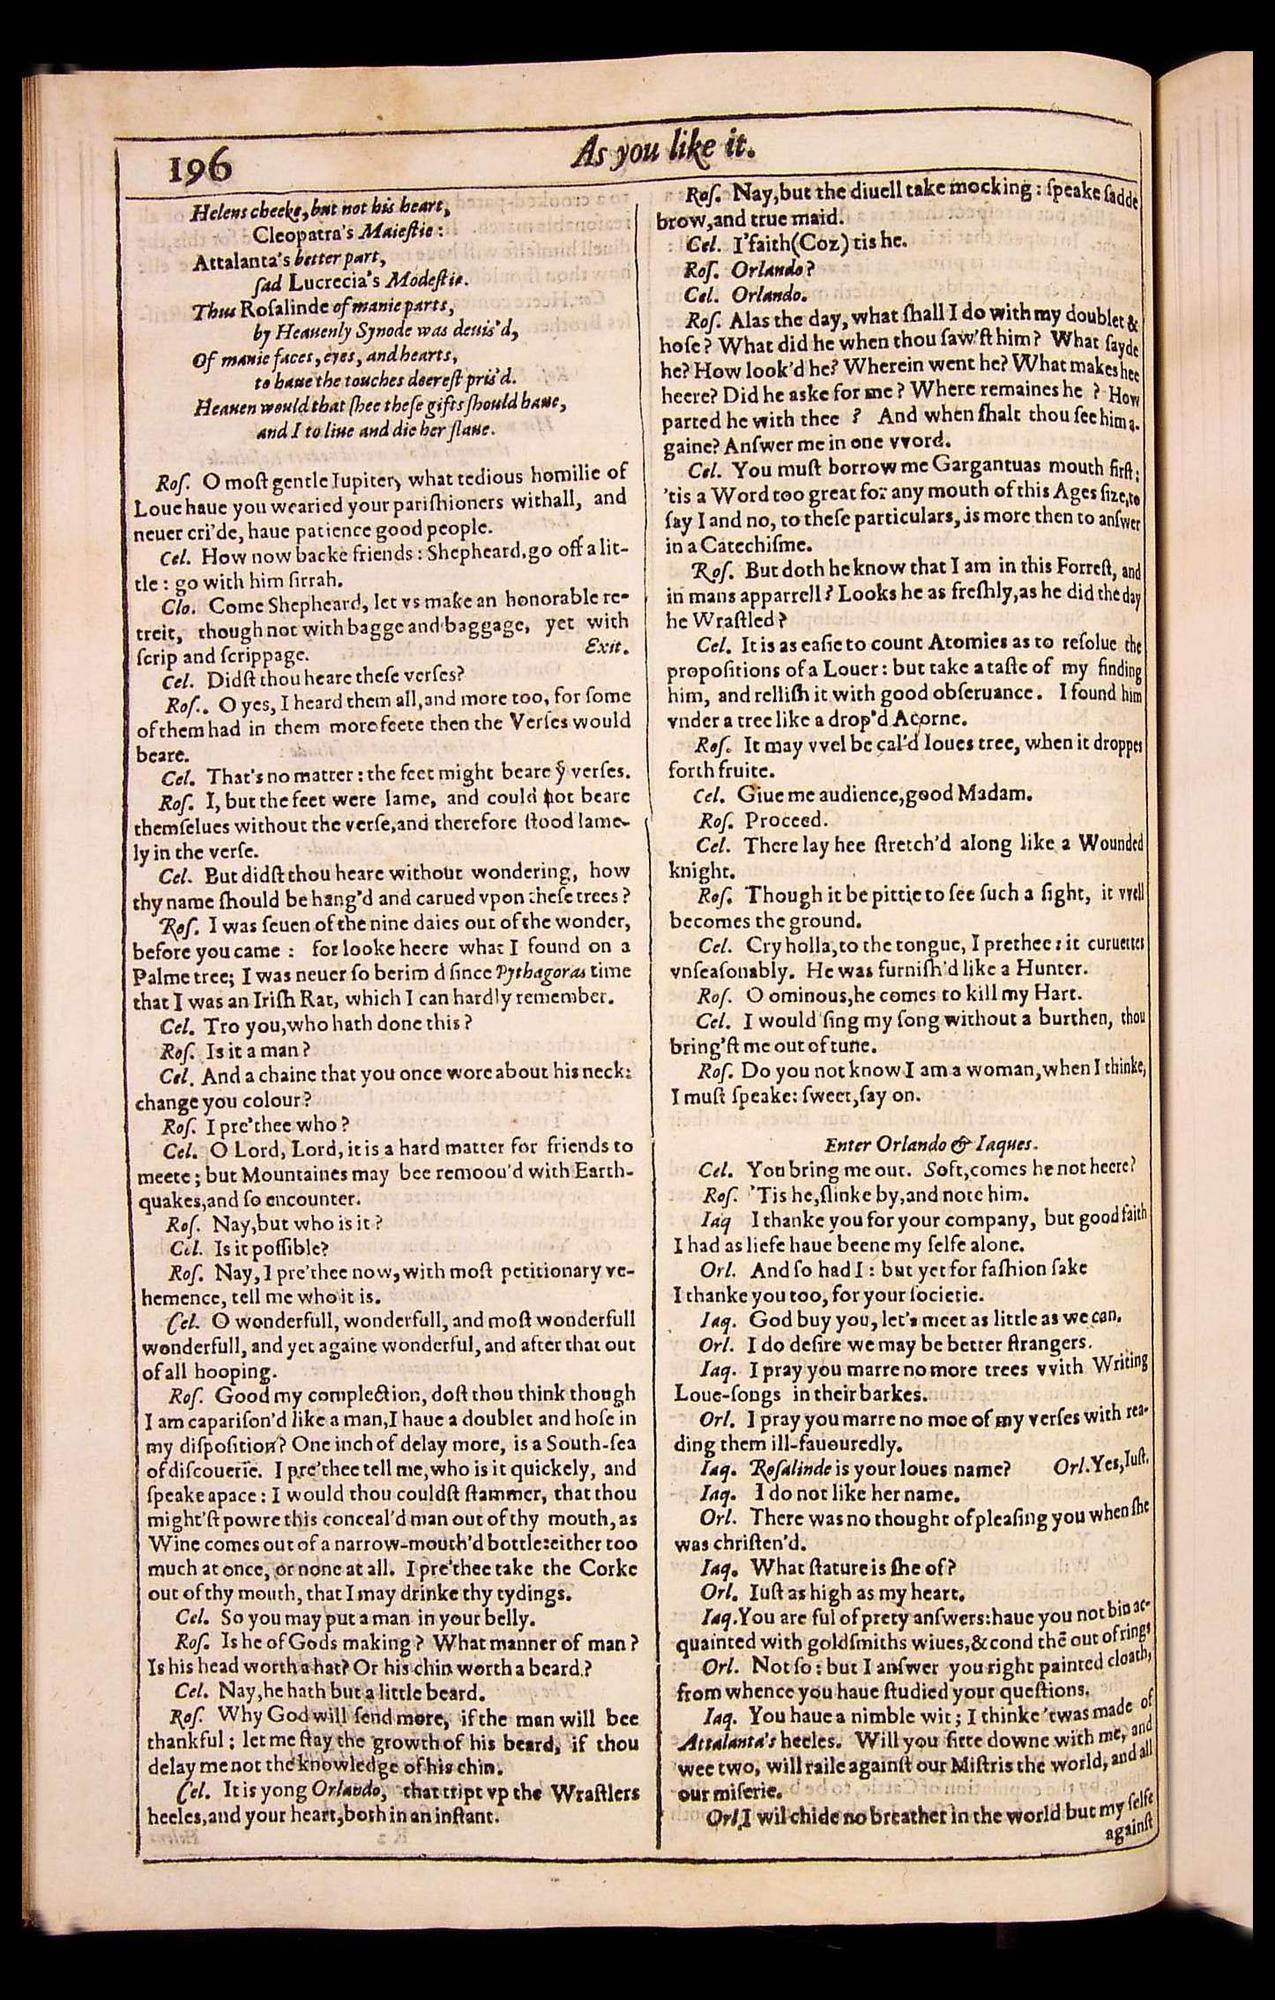 196
As you like it.
Helens cheeke, but not his heart,
Cleopatra's Maiestie:
Attalanta's better part,
ſad Lucrecia's Modeſtie.
Thus Roſalinde of manie parts,
by Heauenly Synode was deuis'd,
Of manie faces, eyes, and hearts,
to haue the touches deereſt pris'd.
Heauen would that ſhee theſe gifts ſhould haue,
and I to liue and die her ſlaue.
Roſ. O moſt gentle Iupiter, what tedious homilie of
Loue haue you wearied your pariſhioners withall, and
neuer cri'de, haue patience good people.
Cel. How now backe friends: Shepheard, go off a lit-
tle: go with him ſirrah.
Clo. Come Shepheard, let vs make an honorable re-
treit, though not with bagge and baggage, yet with
ſcrip and ſcrippage. Exit.
Cel. Didſt thou heare theſe verſes?
Roſ. O yes, I heard them all, and more too, for ſome
of them had in them more feete then the Verſes would
beare.
Cel. That's no matter: the feet might beare ẏ verſes.
Roſ. I, but the feet were lame, and could not beare
themſelues without the verſe, and therefore ſtood lame-
ly in the verſe.
Cel. But didſt thou heare without wondering, how
thy name ſhould be hang'd and carued vpon theſe trees?
Roſ. I was ſeuen of the nine daies out of the wonder,
before you came: for looke heere what I found on a
Palme tree; I was neuer ſo berim d ſince Pythagoras time
that I was an Iriſh Rat, which I can hardly remember.
Cel. Tro you, who hath done this?
Roſ. Is it a man?
Cel. And a chaine that you once wore about his neck:
change you colour?
Roſ. I pre'thee who?
Cel. O Lord, Lord, it is a hard matter for friends to
meete; but Mountaines may bee remoou'd with Earth-
quakes, and ſo encounter.
Roſ. Nay, but who is it?
Cel. Is it poſſible?
Roſ. Nay, I pre'thee now, with moſt petitionary ve-
hemence, tell me who it is.
Cel. O wonderfull, wonderfull, and moſt wonderfull
wonderfull, and yet againe wonderful, and after that out
of all hooping.
Roſ. Good my complection, doſt thou think though
I am capariſon'd like a man, I haue a doublet and hoſe in
my diſpoſition? One inch of delay more, is a South-ſea
of diſcouerie. I pre'thee tell me, who is it quickely, and
ſpeake apace: I would thou couldſt ſtammer, that thou
might'ſt powre this conceal'd man out of thy mouth, as
Wine comes out of a narrow-mouth'd bottle: either too
much at once, or none at all. I pre'thee take the Corke
out of thy mouth, that I may drinke thy tydings.
Cel. So you may put a man in your belly.
Roſ. Is he of Gods making? What manner of man?
Is his head worth a hat? Or his chin worth a beard?
Cel. Nay, he hath but a little beard.
Roſ. Why God will ſend more, if the man will bee
thankful; let me ſtay the growth of his beard, if thou
delay me not the knowledge of his chin.
Cel. It is yong Orlando, that tript vp the Wraſtlers
heeles, and your heart, both in an inſtant.
Roſ. Nay, but the diuell take mocking: ſpeake ſadde
brow, and true maid.
Cel. I'faith (Coz) tis he.
Roſ. Orlando?
Cel. Orlando.
Roſ. Alas the day, what ſhall I do with my doublet &
hoſe? What did he when thou ſaw'ſt him? What ſayde
he? How look'd he? Wherein went he? What makes hee
heere? Did he aske for me? Where remaines he? How
parted he with thee? And when ſhalt thou ſee him a-
gaine? Anſwer me in one vvord.
Cel. You muſt borrow me Gargantuas mouth firſt:
'tis a Word too great for any mouth of this Ages ſize, to
ſay I and no, to theſe particulars, is more then to anſwer
in a Catechiſme.
Roſ. But doth he know that I am in this Forreſt, and
in mans apparrell? Looks he as freſhly, as he did the day
he Wraſtled?
Cel. It is as eaſie to count Atomies as to reſolue the
propoſitions of a Louer: but take a taſte of my finding
him, and relliſh it with good obſeruance. I found him
vnder a tree like a drop'd Acorne.
Roſ. It may vvel be cal'd Ioues tree, when it droppes
forth fruite.
Cel. Giue me audience, good Madam.
Roſ. Proceed.
Cel. There lay hee ſtretch'd along like a Wounded
knight.
Roſ. Though it be pittie to ſee ſuch a ſight, it vvell
becomes the ground.
Cel. Cry holla, to the tongue, I prethee: it curuettes
vnſeaſonably. He was furniſh'd like a Hunter.
Roſ. O ominous, he comes to kill my Hart.
Cel. I would ſing my ſong without a burthen, thou
bring'ſt me out of tune.
Roſ. Do you not know I am a woman, when I thinke,
I muſt ſpeake: ſweet, ſay on.
Enter Orlando & Iaques.
Cel. You bring me out. Soft, comes he not heere?
Roſ. 'Tis he, ſlinke by, and note him.
Iaq I thanke you for your company, but good faith
I had as liefe haue beene my ſelfe alone.
Orl. And ſo had I: but yet for faſhion ſake
I thanke you too, for your ſocietie.
Iaq. God buy you, let's meet as little as we can.
Orl. I do deſire we may be better ſtrangers.
Iaq. I pray you marre no more trees vvith Writing
Loue-ſongs in their barkes.
Orl. I pray you marre no moe of my verſes with rea-
ding them ill-fauouredly.
Iaq. Roſalinde is your loues name? Orl. Yes, Iuſt.
Iaq. I do not like her name.
Orl. There was no thought of pleaſing you when ſhe
was chriſten'd.
Iaq. What ſtature is ſhe of?
Orl. Iuſt as high as my heart.
Iaq. You are ful of prety anſwers: haue you not bin ac-
quainted with goldſmiths wiues, & cond thē out of rings
Orl. Not ſo: but I anſwer you right painted cloath,
from whence you haue ſtudied your queſtions.
Iaq. You haue a nimble wit; I thinke 'twas made of
Attalanta's heeles. Will you ſitte downe with me, and
wee two, will raile againſt our Miſtris the world, and all
our miſerie.
Orl. I wil chide no breather in the world but my ſelfe
againſt